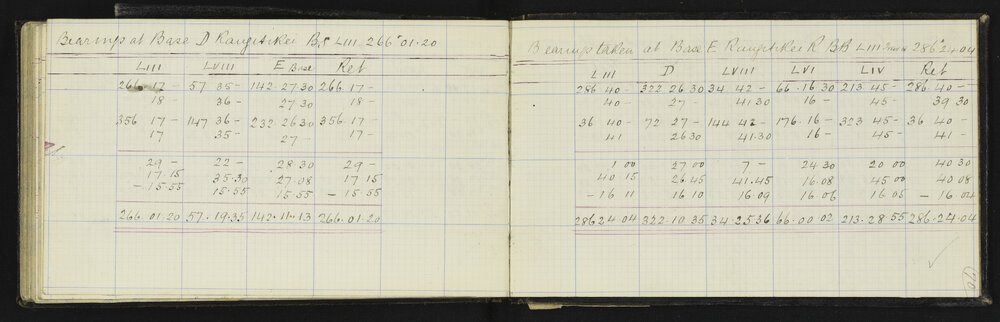 Bearings at Base D Rangitikei BS LIII 266° 01. 20
LIII LVIII E Base Ret
266 17 - 57 35 - 142. 27 30 266. 17 -
18 - 36 - 27 30 18 -
356 17 - 147 36 - 232. 26 30 356. 17 -
17 35 - 27 - 17 -
29 - 22 - 28 30 29 -
17. 15 35. 30 27. 08 17 15
- 15. 55 15. 55 15. 55 - 15 55
266. 01. 20 57. 19. 35 142. 11. 13 266. 01. 20
Bearings taken at Base E Rangitikei R BB LIII 286° 24. 04
LIII D LVIII LVI LIV Ret
286 40 - 322 26 30 34 42 - 66. 16 30 213 45 - 286. 40 -
40 - 27 - 41. 30 16 - 45 - 39 30
36 40 - 72 27 - 144 42 - 176. 16 - 323 45 - 36 40 -
41 26 30 41. 30 16 - 45 - 41 -
1 00 27 00 7 - 24 30 20 00 40 30
40 15 26. 45 41. 45 16. 08 45 00 40 08
- 16 11 16 10 16. 09 16 06 16 05 - 16. 04
286 24. 04 322. 10. 35 34. 25 36 66. 00 02 213. 28 55 286. 24. 04